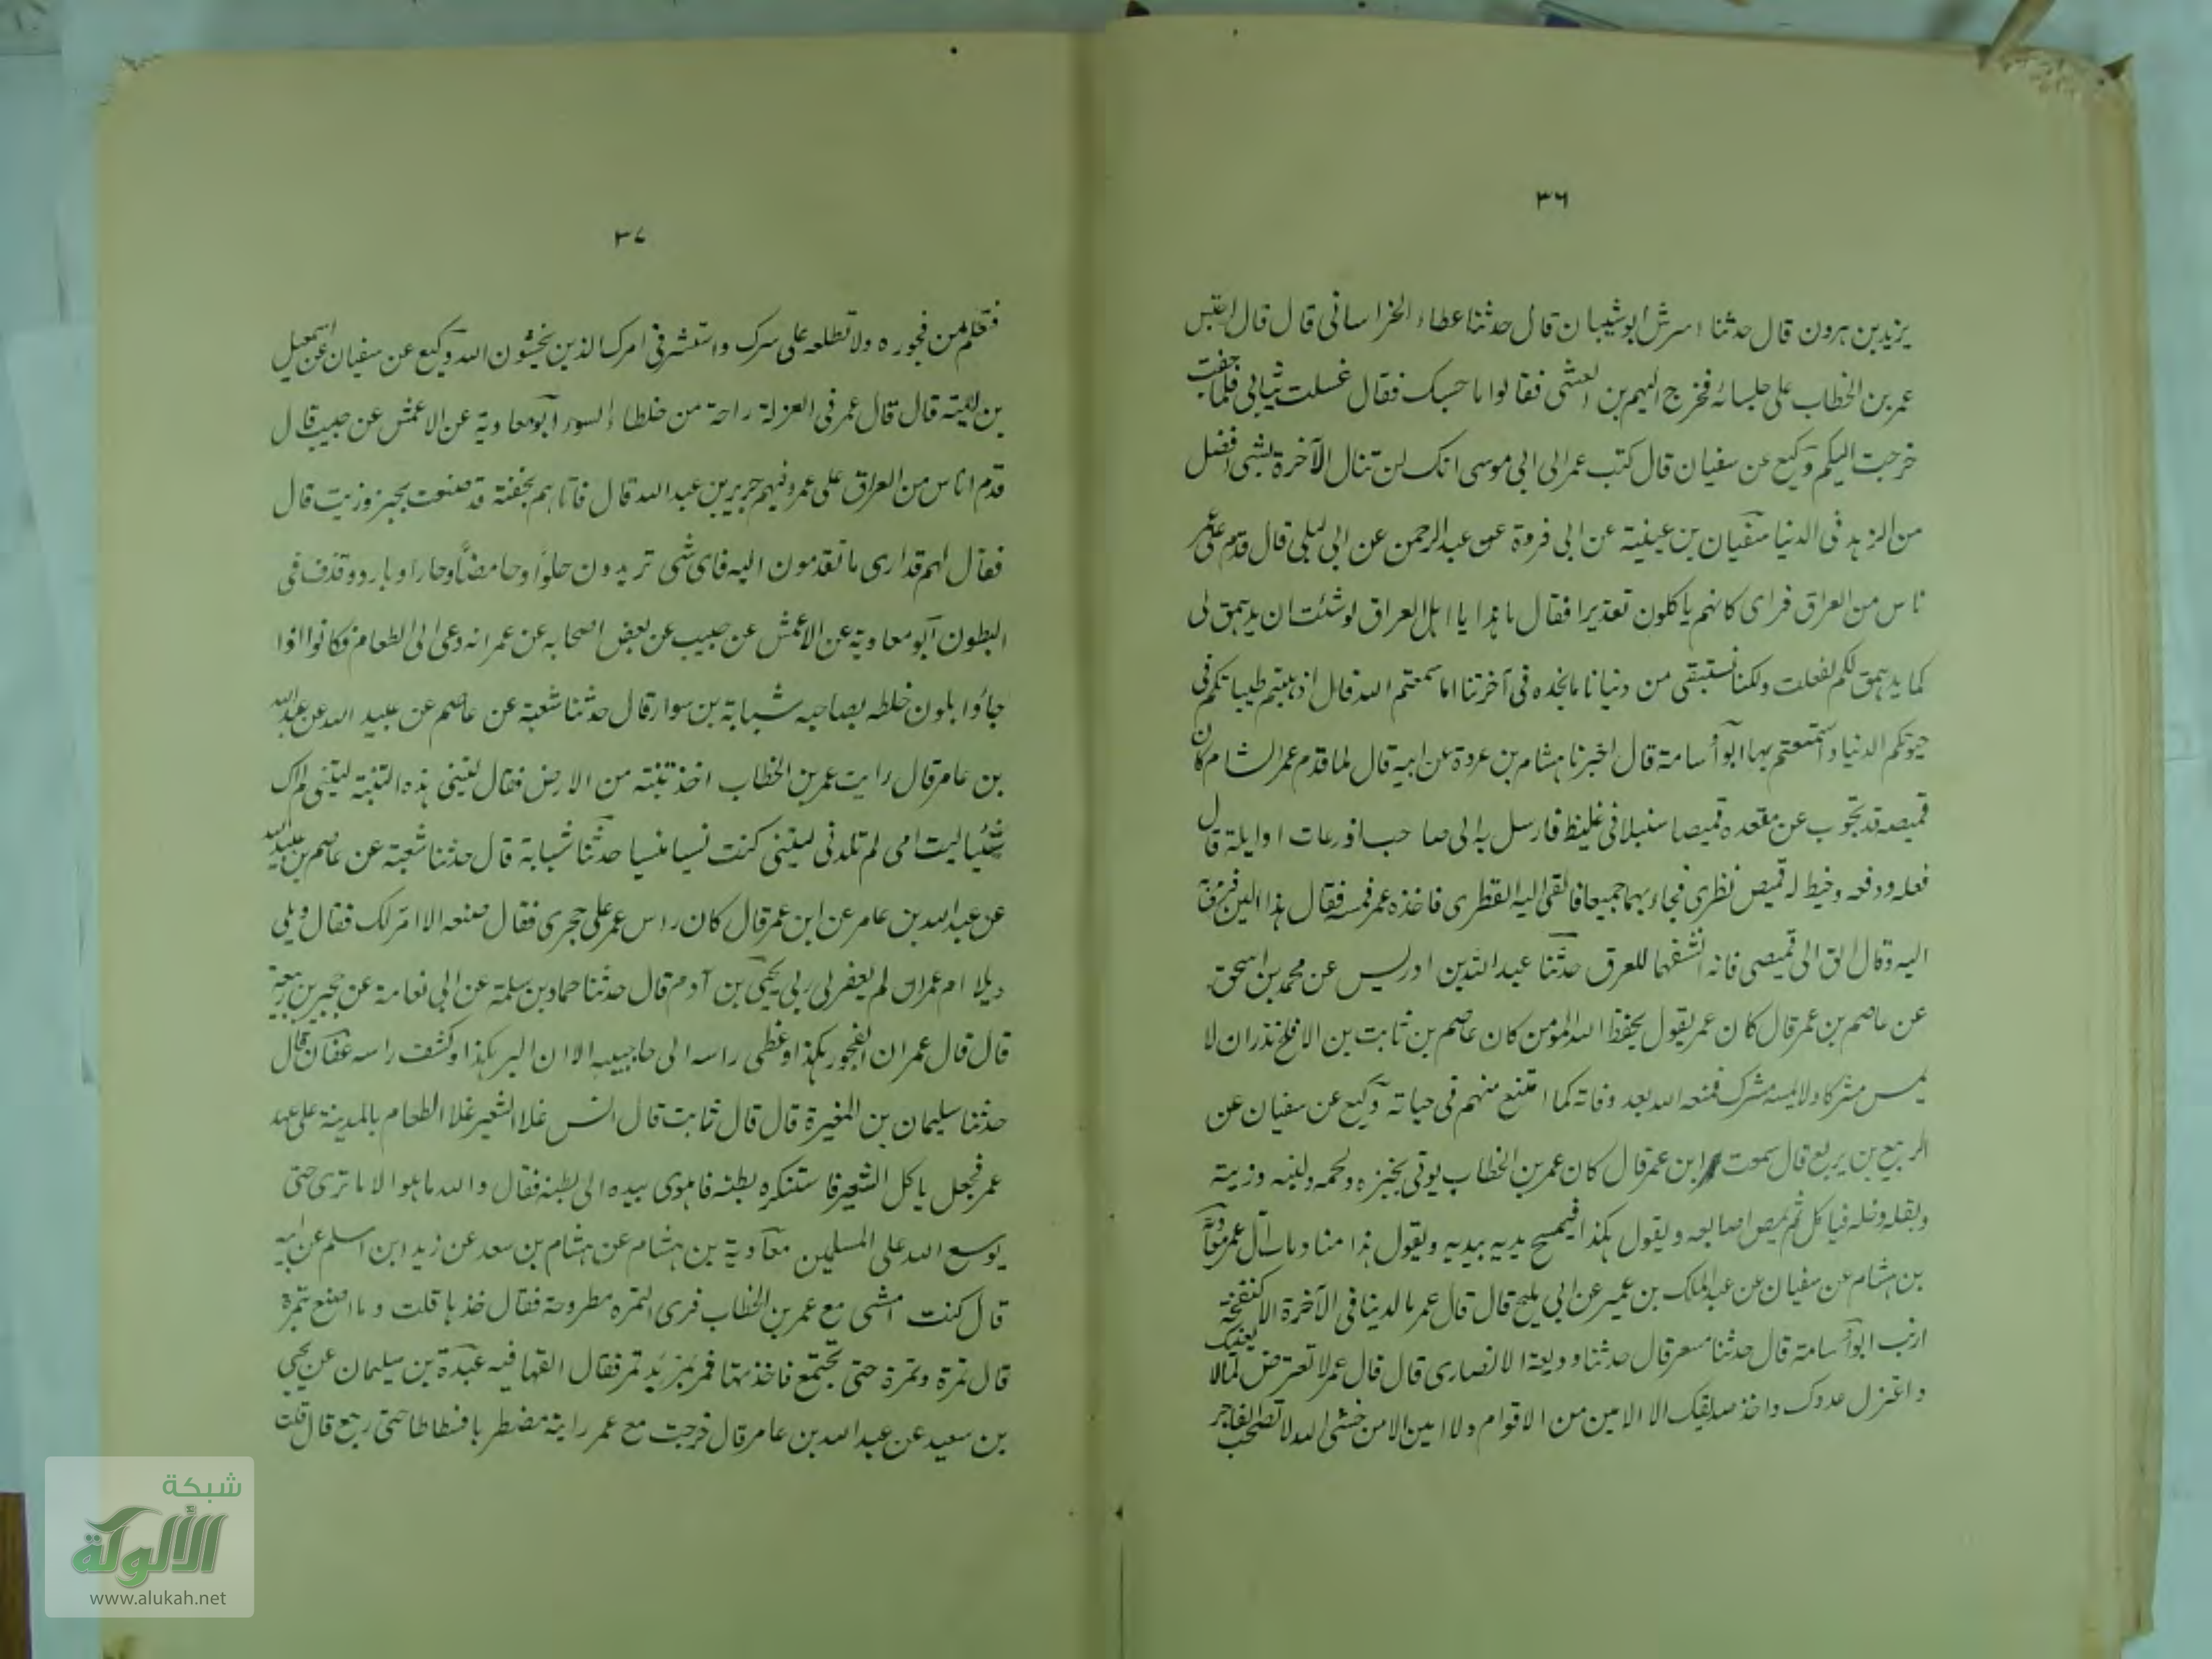 ٣٦
يزيد بن هرون قال حدثنا اسرش ابو شيبان قال حدثنا عطاء الخراسانى قال قال احتبس
عمر بن الخطاب على جلسائه فخرج اليهم من العشى فقالوا ما حبسك فقال غسلت ثيابى فلما جفت
خرجت اليكم وكيع عن سفيان قال كتب عمر الى ابى موسى انك لن تنال الآخرة بشى افضل
من الزهد فى الدنيا سفيان بن عيينة عن ابى فروة عن عبد الرحمن عن ابى ليلى قال قدم على عمر
ناس من العراق فراى كانهم ياكلون تعذيرا فقال ما هذا يا اهل العراق لو شئت ان يدهمق لى
كما يدهمق لكم لفعلت ولكنا نستبقى من دنيانا ما نجده فى آخرتنا اما سمعتم الله قال اذهبتم طيباتكم فى
حيوتكم الدنيا واستمتعتم بها ابو أسامة قال اخبرنا هشام بن عروة عن ابيه قال لما قدم عمر الشام كان
قميصه قد تجوب عن مقعده قميصا سنبلانى غليظ فارسل به الى صاحب اذرعات او ايلة قال
فغسله ورقعه وخيط له قميص نظرى فجاء بهما جميعا فالقى اليه القطرى فاخذه عمر فمسه فقال هذا الين فرمى به
اليه وقال الق الى قميصى فانه انشفها للعرق حدثنا عبد الله بن ادريس عن محمد بن اسحق
عن عاصم بن عمر قال كان عمر يقول يحفظ الله المؤمن كان عاصم بن ثابت بن الافلح نذر ان لا
يمس مشركا ولا يمسه مشرك فمنعه الله بعد وفاته كما امتنع منهم فى حياته وكيع عن سفيان عن
الربيع بن يربع قال سمعت ابن عمر قال كان عمر بن الخطاب يوتى بخبزه ولحمه ولبنه وزيته
وبقله وخله فياكل ثم يمص اصابعه ويقول هكذا فيمسح يديه بيديه ويقول هذا مناديل آل عمر معاوية
بن هشام عن سفيان عن عبد الملك بن عمير عن ابى مليح قال قال عمر ما الدنيا فى الآخرة الا كنفخة
ارنب ابو أسامة قال حدثنا مسعر قال حدثنا وديعة الانصارى قال قال عمر لا تعترض لما لا يعنيك
واعتزل عدوك واحذر صديقك الا الامين من الاقوام ولا امين الا من خشى الله لا تصحب الفاجر
٣٧
فتعلم من فجوره ولا تطلعه على سرك واستشر فى امرك الذين يخشون الله وكيع عن سفيان عن اسمعيل
بن امية قال قال عمر فى العزلة راحة من خلطاء السوء ابو معاوية عن الاعمش عن حبيب قال
قدم اناس من العراق على عمر وفيهم جرير بن عبد الله قال فاتاهم بجفنة قد صنعت بخبز وزيت قال
فقال لهم قد ارى ما تقدمون اليه فاى شى تريدون حلوا وحامضا وحارا وباردو قذف فى
البطون ابو معاوية عن الاعمش عن حبيب عن بعض اصحابه عن عمر انه دعى الى الطعام فكانوا اذا
جاؤا بلون خلطه بصاحبه شبابة بن سوار قال حدثنا شعبة عن عاصم عن عبيد الله عن عبد الله
بن عامر قال رايت عمر بن الخطاب اخذ تبنة من الارض فقال ليتنى هذه التبنة ليتنى لم اك
شيئا ليت امى لم تلدنى ليتنى كنت نسيا منسيا حدثنا شبابة قال حدثنا شعبة عن عاصم بن عبيد الله
عن عبد الله بن عامر عن ابن عمر قال كان راس عمر على حجرى فقال ضعه لا ام لك فقال ويلى
ويلا ام عمر ان لم يغفر لى ربى يحيى بن آدم قال حدثنا حماد بن سلمة عن ابى نعامة عن حجير بن ربيعة
قال قال عمر ان الفجور هكذا وغطى راسه الى حاجبيه الا ان البر هكذا وكشف راسه عفان قال
حدثنا سليمان بن المغيرة قال قال ثابت قال انس غلا الشعير غلا الطعام بالمدينة على عهد
عمر فجعل ياكل الشعير فاستنكره بطنه فاهوى بيده الى بطنه فقال والله ما هوا الا ما ترى حتى
يوسع الله على المسلمين معاوية بن هشام عن هشام بن سعد عن زيد ابن اسلم عن ابيه
قال كنت امشى مع عمر بن الخطاب فرى التمره مطروحة فقال خذها قلت وما اصنع بتمرة
قال تمرة وتمرة حتى تجتمع فاخذتها فمر بمربد تمر فقال القها فيه عبدة بن سليمان عن يحيى
بن سعيد عن عبد الله بن عامر قال خرجت مع عمر رايته مضطربا فسطاطا حتى رجع قال قلت
شبكة
الألوكة
www.alukah.net